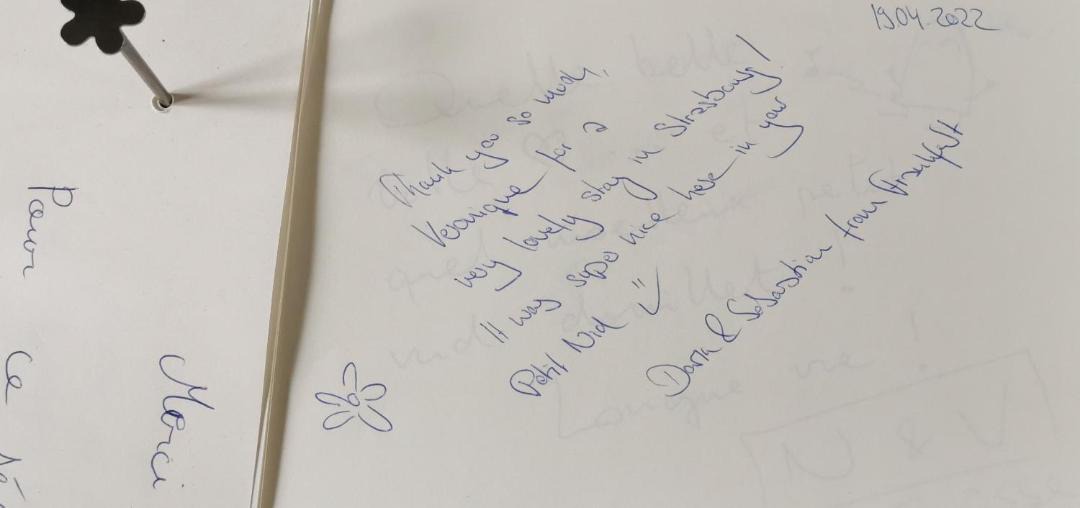 19.04.2022
Thank you so much,
Veronique for a
very lovely stay in Strasbourg!
It was super nice here in your
Petit Nid
Daria & Sebastian from Frankfurt
Merci
Pour ce